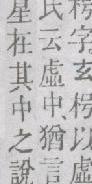 枵字玄枵以虛
民云虛中猶言
星在其中之說